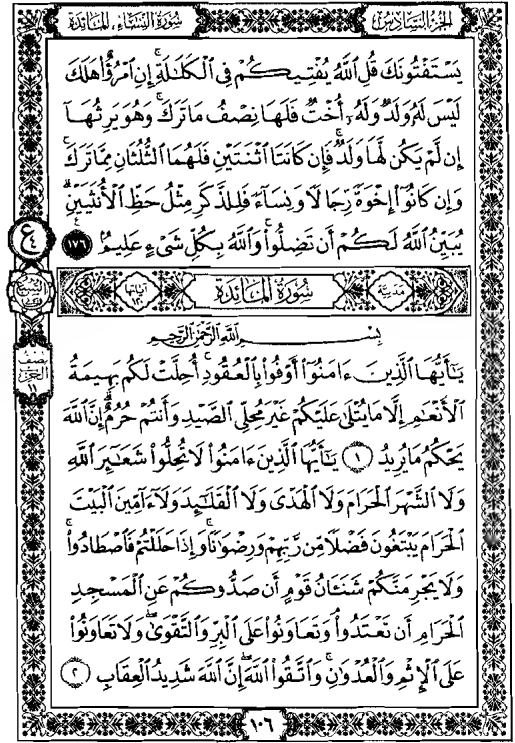 الجزء السادس سورة النساء، المائدة
يَسْتَفْتُونَكَ قُلِ ٱللَّهُ يُفْتِيكُمْ فِي ٱلْكَلَـٰلَةِ ۚ إِنِ ٱمْرُؤٌا۟ هَلَكَ
لَيْسَ لَهُۥ وَلَدٌ وَلَهُۥٓ أُخْتٌ فَلَهَا نِصْفُ مَا تَرَكَ ۚ وَهُوَ يَرِثُهَآ
إِن لَّمْ يَكُن لَّهَا وَلَدٌ ۚ فَإِن كَانَتَا ٱثْنَتَيْنِ فَلَهُمَا ٱلثُّلُثَانِ مِمَّا تَرَكَ ۚ
وَإِن كَانُوٓا۟ إِخْوَةً رِّجَالًا وَنِسَآءً فَلِلذَّكَرِ مِثْلُ حَظِّ ٱلْأُنثَيَيْنِ ۗ
يُبَيِّنُ ٱللَّهُ لَكُمْ أَن تَضِلُّوا۟ ۗ وَٱللَّهُ بِكُلِّ شَىْءٍ عَلِيمٌۢ ١٧٦
مدنية سورة المائدة
بِسْمِ ٱللَّهِ ٱلرَّحْمَـٰنِ ٱلرَّحِيمِ
يَـٰٓأَيُّهَا ٱلَّذِينَ ءَامَنُوٓا۟ أَوْفُوا۟ بِٱلْعُقُودِ ۚ أُحِلَّتْ لَكُم بَهِيمَةُ
ٱلْأَنْعَـٰمِ إِلَّا مَا يُتْلَىٰ عَلَيْكُمْ غَيْرَ مُحِلِّى ٱلصَّيْدِ وَأَنتُمْ حُرُمٌ ۗ إِنَّ ٱللَّهَ
يَحْكُمُ مَا يُرِيدُ ١ يَـٰٓأَيُّهَا ٱلَّذِينَ ءَامَنُوا۟ لَا تُحِلُّوا۟ شَعَـٰٓئِرَ ٱللَّهِ
وَلَا ٱلشَّهْرَ ٱلْحَرَامَ وَلَا ٱلْهَدْىَ وَلَا ٱلْقَلَـٰٓئِدَ وَلَآ ءَآمِّينَ ٱلْبَيْتَ
ٱلْحَرَامَ يَبْتَغُونَ فَضْلًا مِّن رَّبِّهِمْ وَرِضْوَٰنًا ۚ وَإِذَا حَلَلْتُمْ فَٱصْطَادُوا۟ ۚ
وَلَا يَجْرِمَنَّكُمْ شَنَـَٔانُ قَوْمٍ أَن صَدُّوكُمْ عَنِ ٱلْمَسْجِدِ
ٱلْحَرَامِ أَن تَعْتَدُوا۟ ۘ وَتَعَاوَنُوا۟ عَلَى ٱلْبِرِّ وَٱلتَّقْوَىٰ ۖ وَلَا تَعَاوَنُوا۟
عَلَى ٱلْإِثْمِ وَٱلْعُدْوَٰنِ ۚ وَٱتَّقُوا۟ ٱللَّهَ ۖ إِنَّ ٱللَّهَ شَدِيدُ ٱلْعِقَابِ ٢
ع
٤
نصف
الحزب
١١
١٠٦